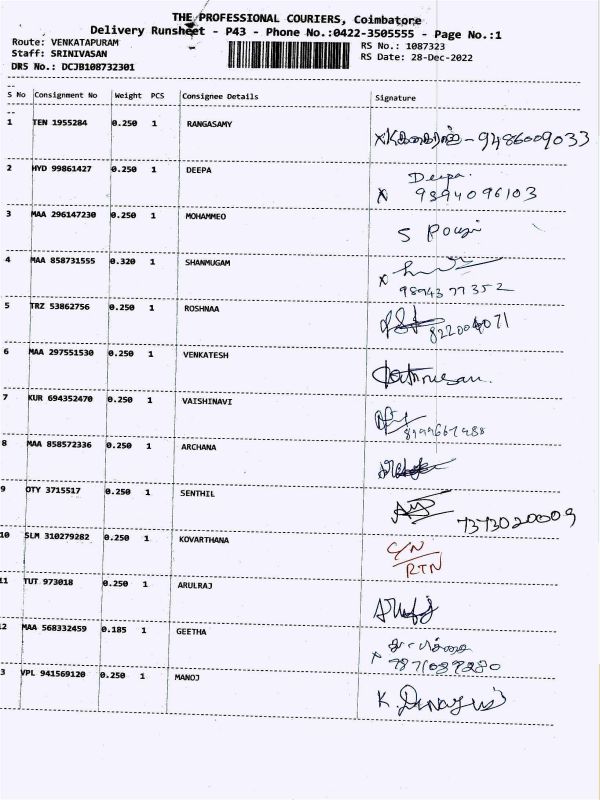 THE PROFESSIONAL COURIERS, Coimbatore
Delivery Runsheet - P43 - Phone No.:0422-3505555 - Page No.:1
Route: VENKATAPURAM
Staff: SRINIVASAN
DRS No.: DCJB108732301
RS No.: 1087323
RS Date: 28-Dec-2022
S No Consignment No Weight PCS Consignee Details Signature
1 TEN 1955284 0.250 1 RANGASAMY
9486009033
2 HYD 99861427 0.250 1 DEEPA Deepa.
x 9394096103
3 MAA 296147230 0.250 1 MOHAMMEO
4 MAA 858731555 0.320 1 SHANMUGAM
x 9894377352
5 TRZ 53862756 0.250 1 ROSHNAA
6 MAA 297551530 0.250 1 VENKATESH
7 KUR 694352470 0.250 1 VAISHINAVI
8 MAA 858572336 0.250 1 ARCHANA
9 OTY 3715517 0.250 1 SENTHIL
7373020009
10 SLM 310279282 0.250 1 KOVARTHANA C/N
RTN
11 TUT 973018 0.250 1 ARULRAJ
2 MAA 568332459 0.185 1 GEETHA
3 VPL 941569120 0.250 1 MANOJ